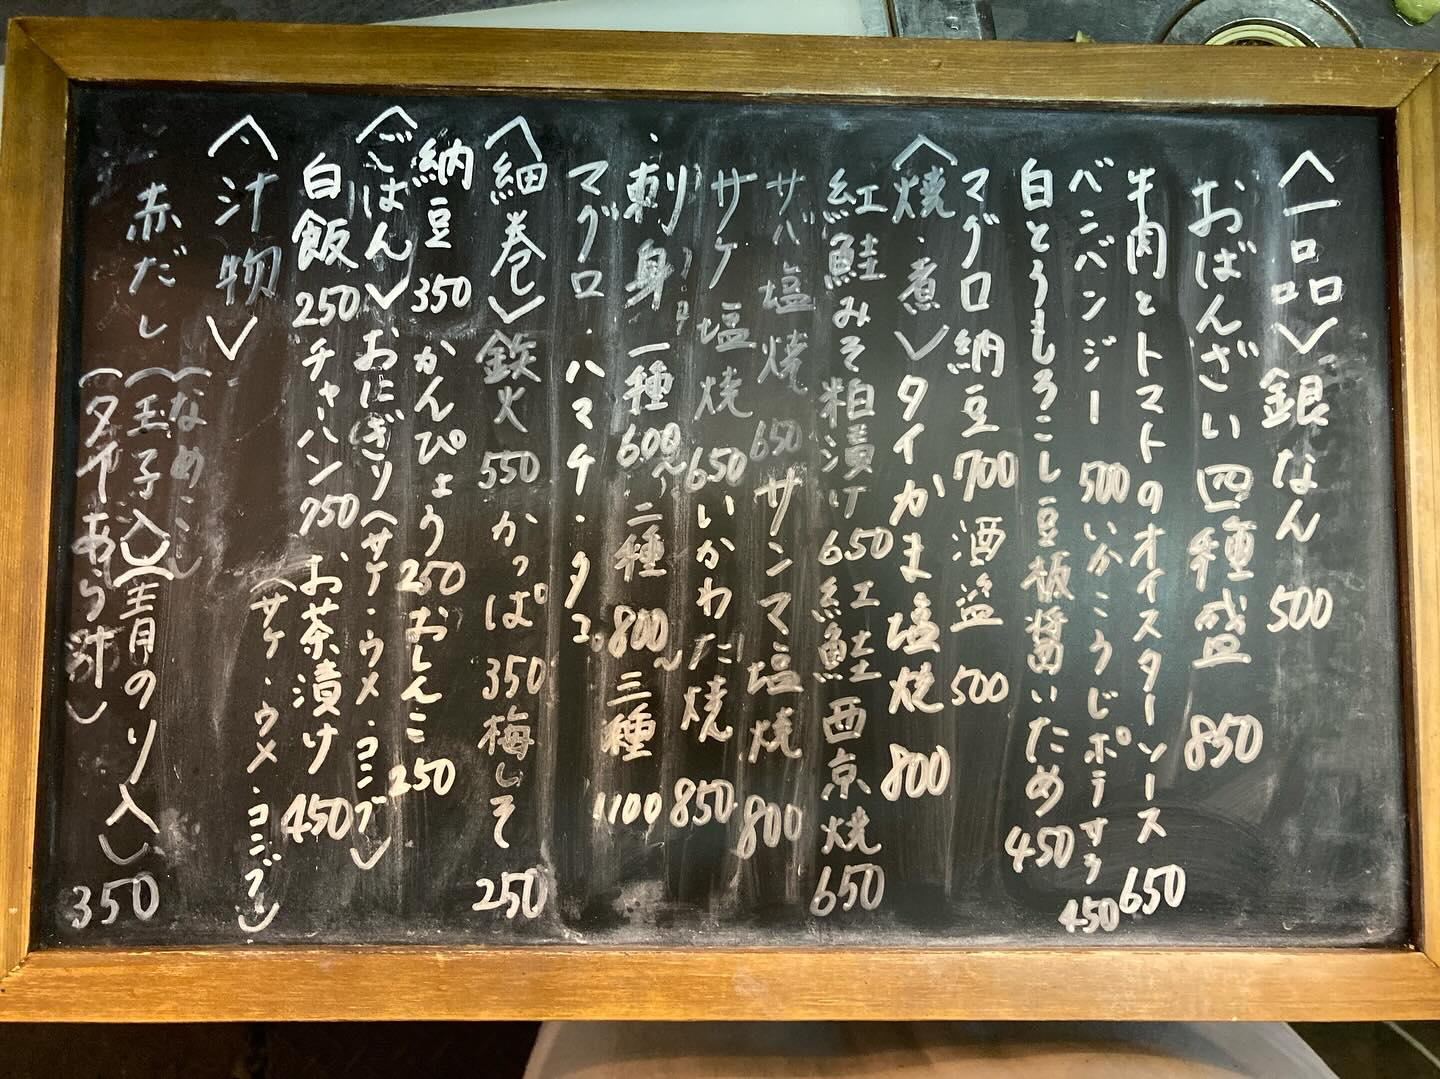 〈一品〉銀なん 500
おばんざい四種盛 850
牛肉とトマトのオイスターソース 650
バンバンジー 500 いかこうじポテサラ 450
白とうもろこし豆板醤いため 450
マグロ納豆 700 酒盗 500
〈焼・煮〉タイかま塩焼 800
紅鮭みそ粕漬け 650 紅鮭西京焼 650
サバ塩焼 650 サンマ塩焼 800
サケ塩焼 650 いかわた焼 850
・刺身 一種 600〜 二種 800〜 三種 1100
マグロ・ハマチ・タコ
〈細巻〉鉄火 550 かっぱ 350 梅しそ 250
納豆 350 かんぴょう 250 おしんこ 250
〈ごはん〉おにぎり(サケ・ウメ・コンブ)
白飯 250 チャーハン 750 お茶漬け 450
(サケ・ウメ・コンブ)
〈汁物〉
赤だし(なめこ汁)
(玉子入)(青のり入) 350
(タイあら汁)